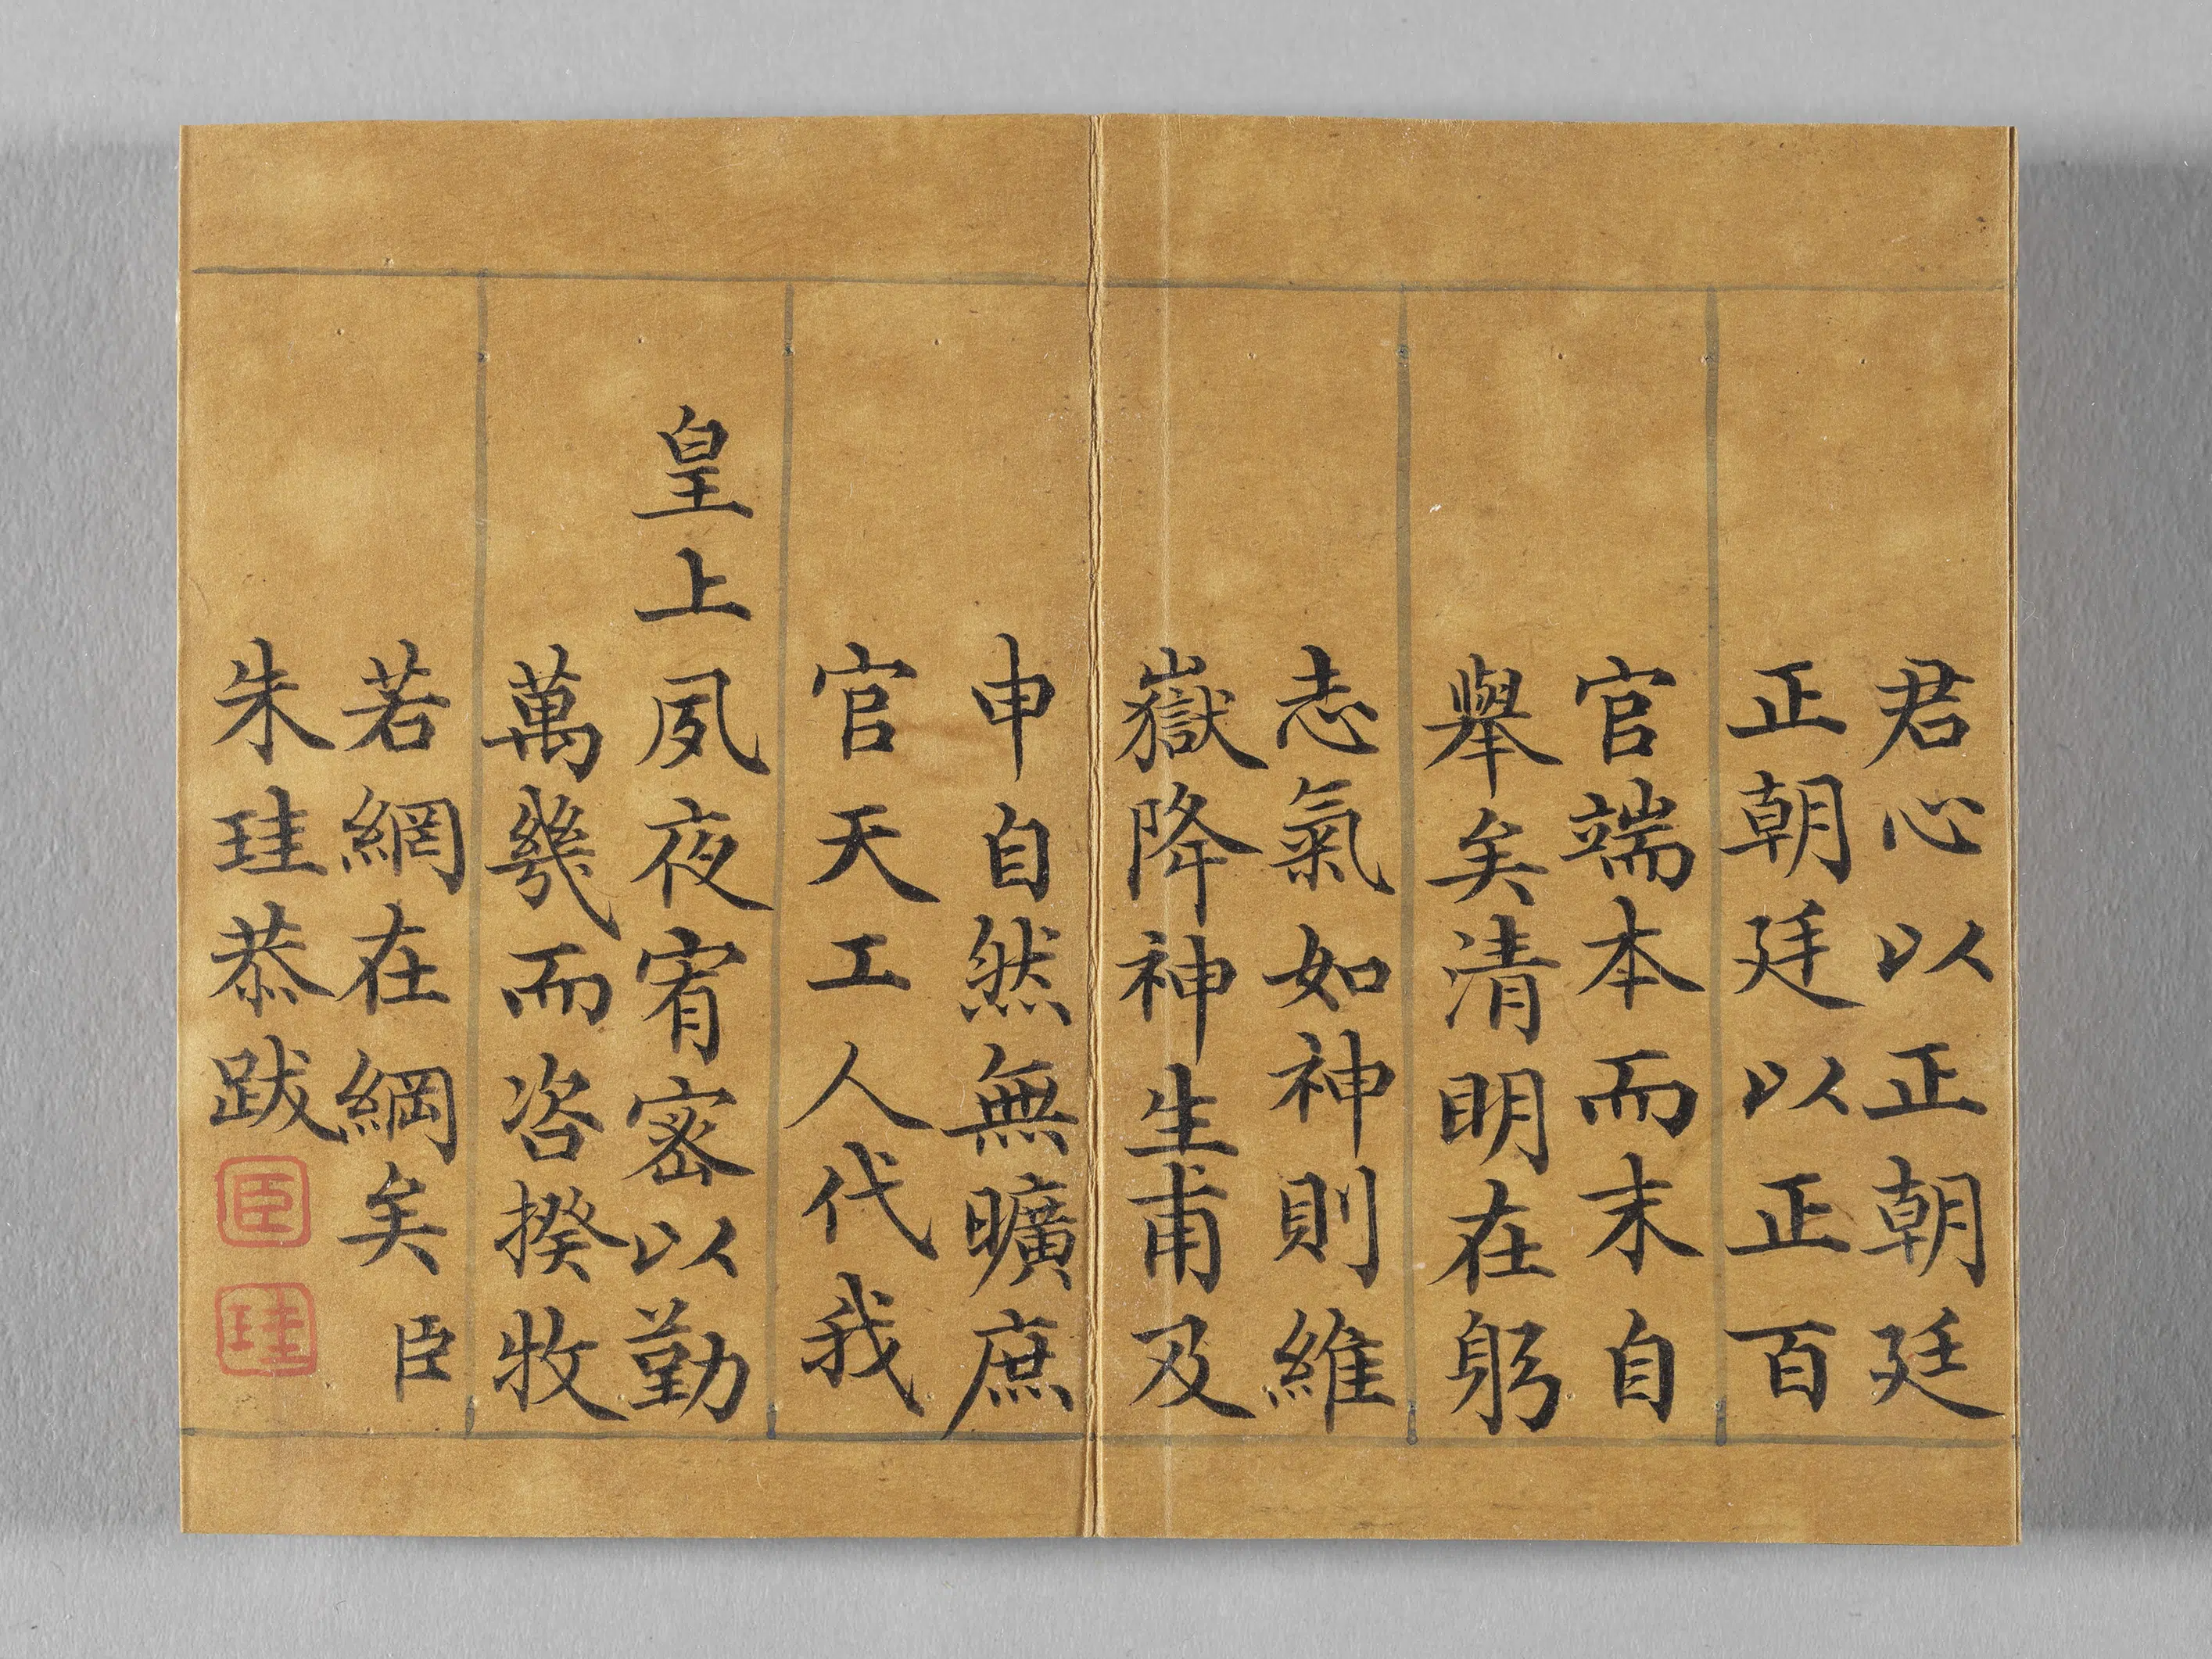 君心以正朝廷
正朝廷以正百
官端本而末自
舉矣清明在躬
志氣如神則維
嶽降神生甫及
申自然無曠庶
官天工人代我
皇上夙夜宥密以勤
萬幾而咨揆牧
若網在綱矣臣
朱珪恭跋
臣
珪